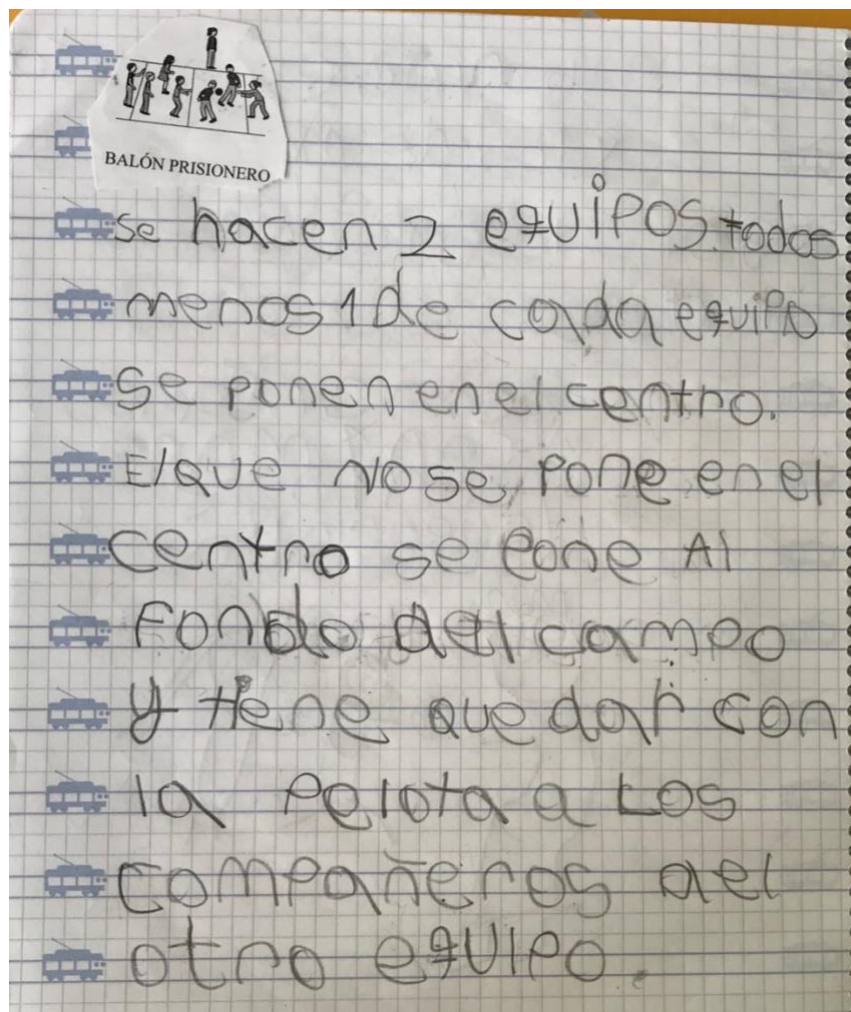 BALÓN PRISIONERO
se hacen 2 equipos. todos
menos 1 de cada equipo
se ponen en el centro.
El que no se pone en el
centro se pone Al
Fondo del campo
y tiene que dar con
la pelota a Los
compañeros del
otro equipo.